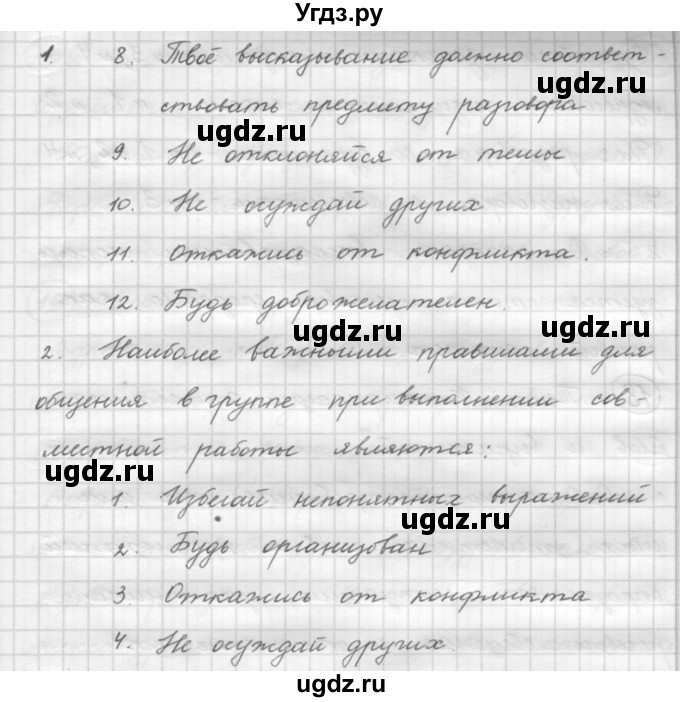 Угдз.ру
1. 8. Твоё высказывание должно соответ-
ugdz.ru
ствовать предмету разговора
ugdz.ru
9. Не отклоняйся от темы
ugdz.ru
10. Не осуждай других
ugdz.ru
11. Откажись от конфликта.
12. Будь доброжелателен.
ugdz.ru
ugdz.ru
2. Наиболее важными правилами для
ugdz.ru
общения в группе при выполнении сов-
местной работы являются:
ugdz.ru
1. Избегай непонятных выражений
ugdz.ru
2. Будь организован
3. Откажись от конфликта
ugdz.ru
4. Не осуждай других.
ugdz.ru